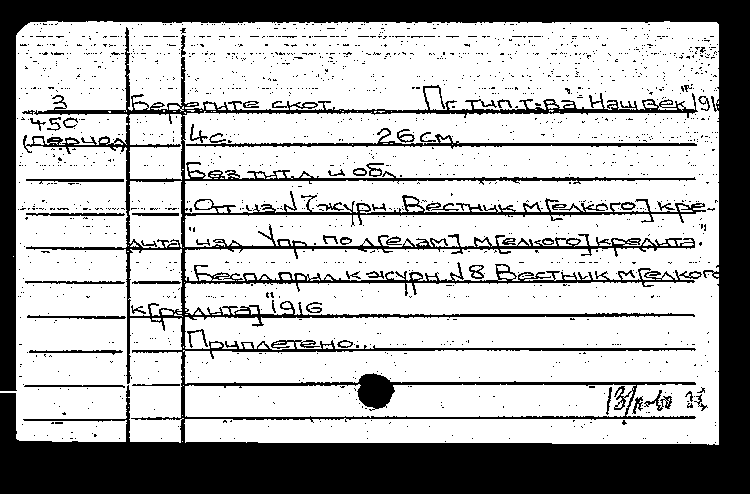 3 Берегите скот. Пг, тип. т-ва "Наш век", 191
450 4с. 26 см.
(период)
Без тит. л. и обл.
Отт. из N7 журн. "Вестник м[елкого] кре-
дита" изд. Упр. по д[елам] м[елкого] кредита."
Беспл. прил. к журн. N8 "Вестник м[елкого
к[редита]" 1916
Приплетено...
13/